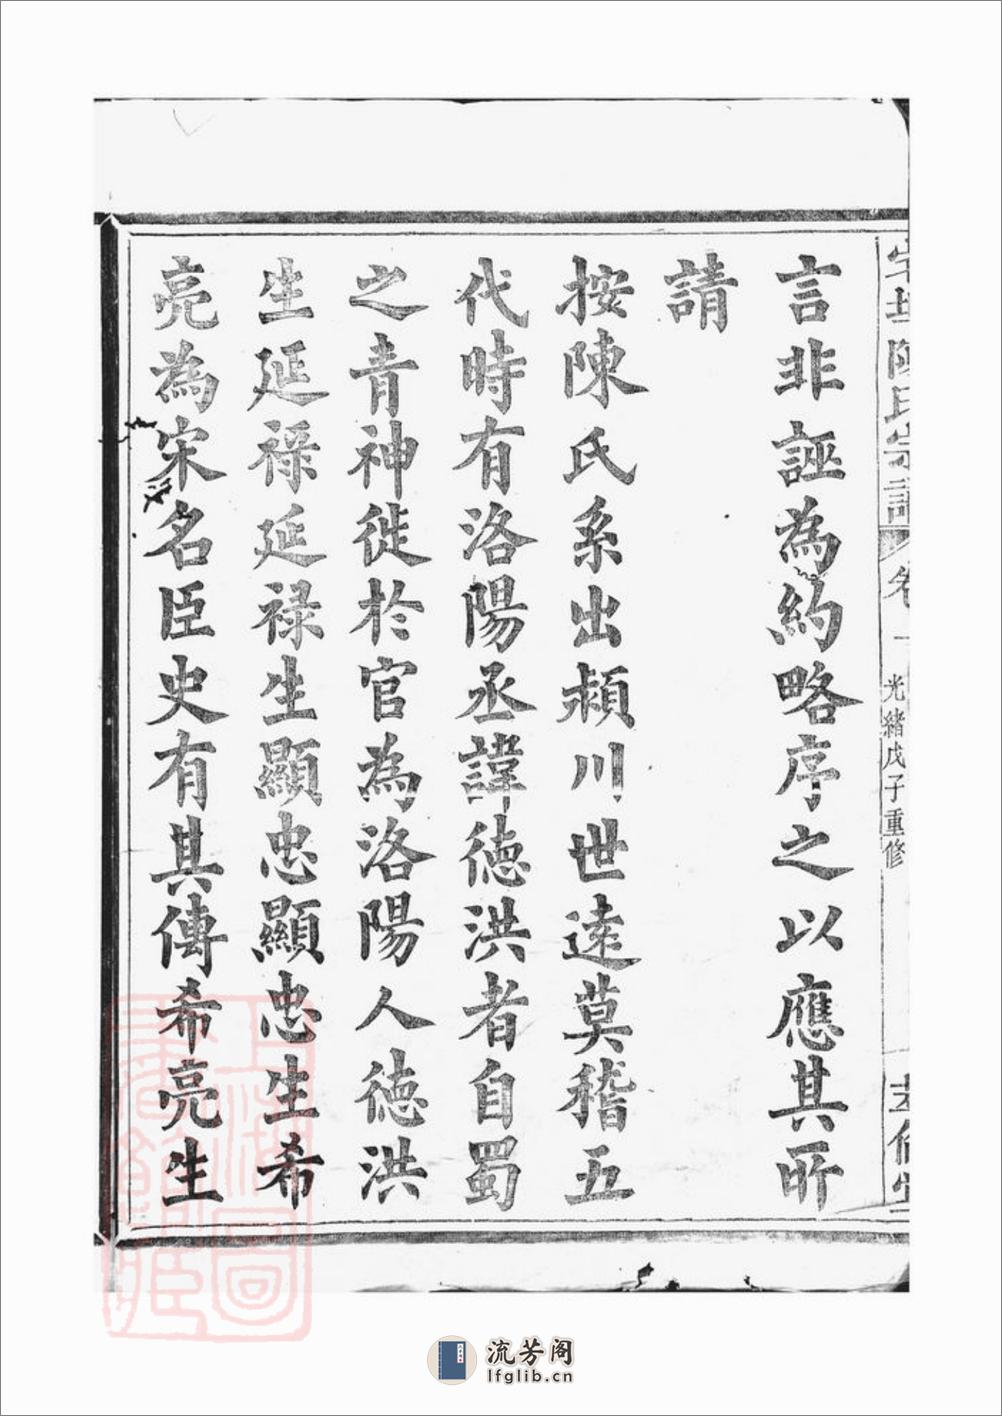 陳氏宗譜 卷一 光緒戊子重修
言非誣為約略序之以應其所
請
按陳氏系出潁川世遠莫稽五
代時有洛陽丞諱德洪者自蜀
之青神徙於官為洛陽人德洪
生延祿延祿生顯忠顯忠生希
亮為宋名臣史有其傳希亮生
上海圖書館藏
流芳阁
lfglib.cn